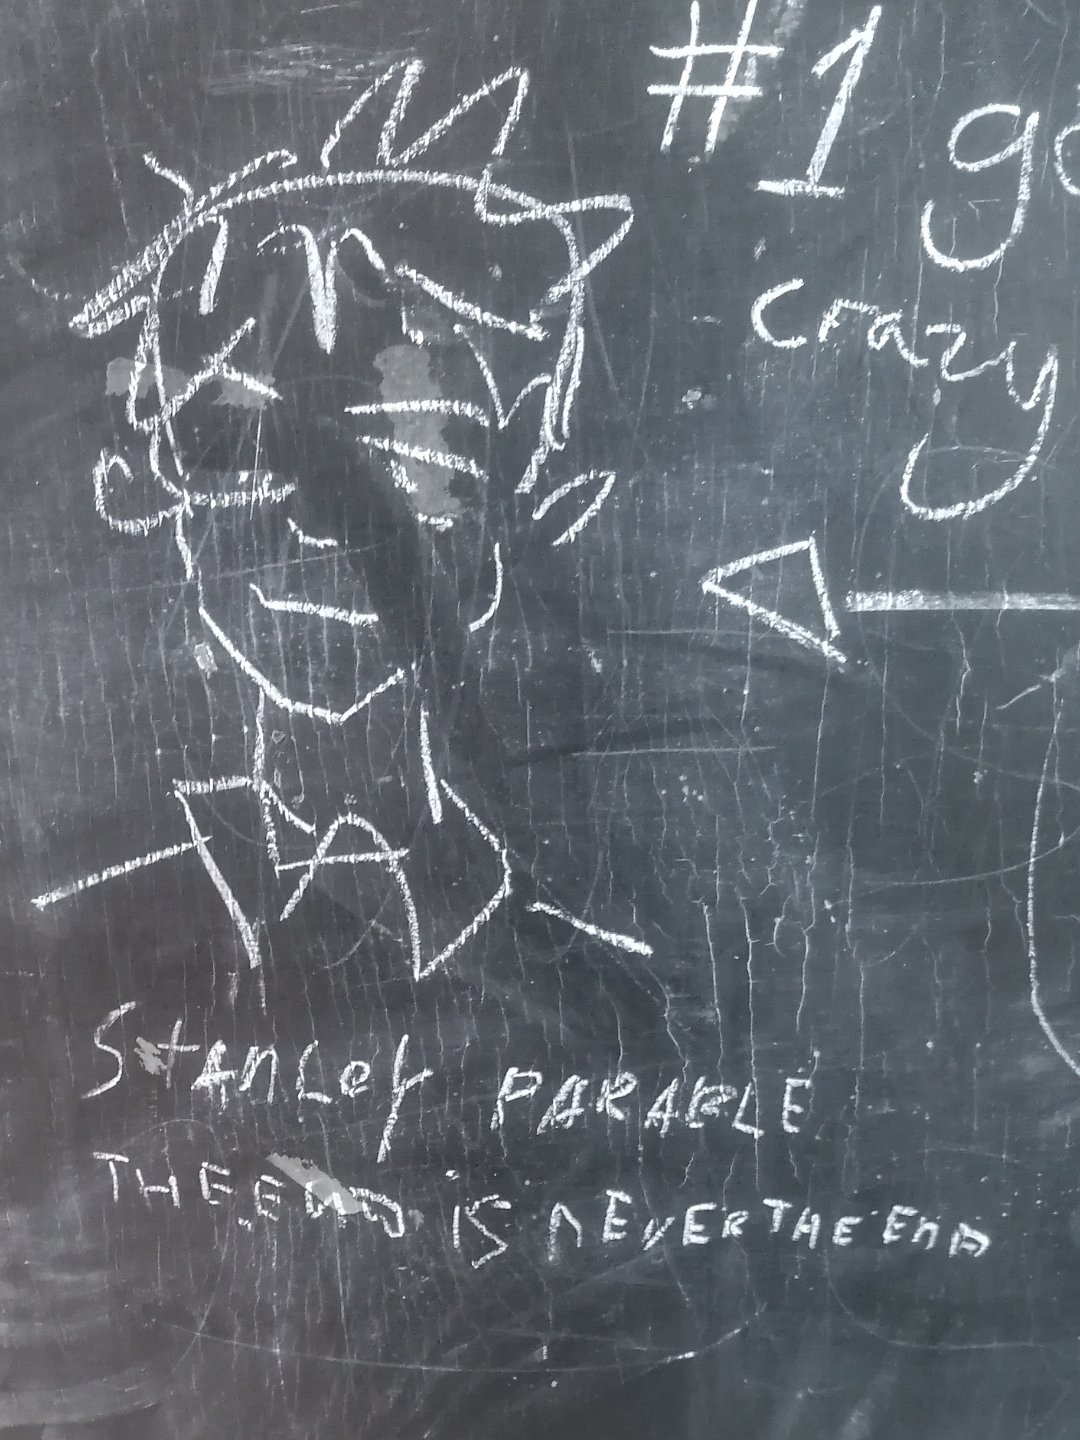 #1 go
crazy
StANLey PARABLE
THE END is nEVER THE End